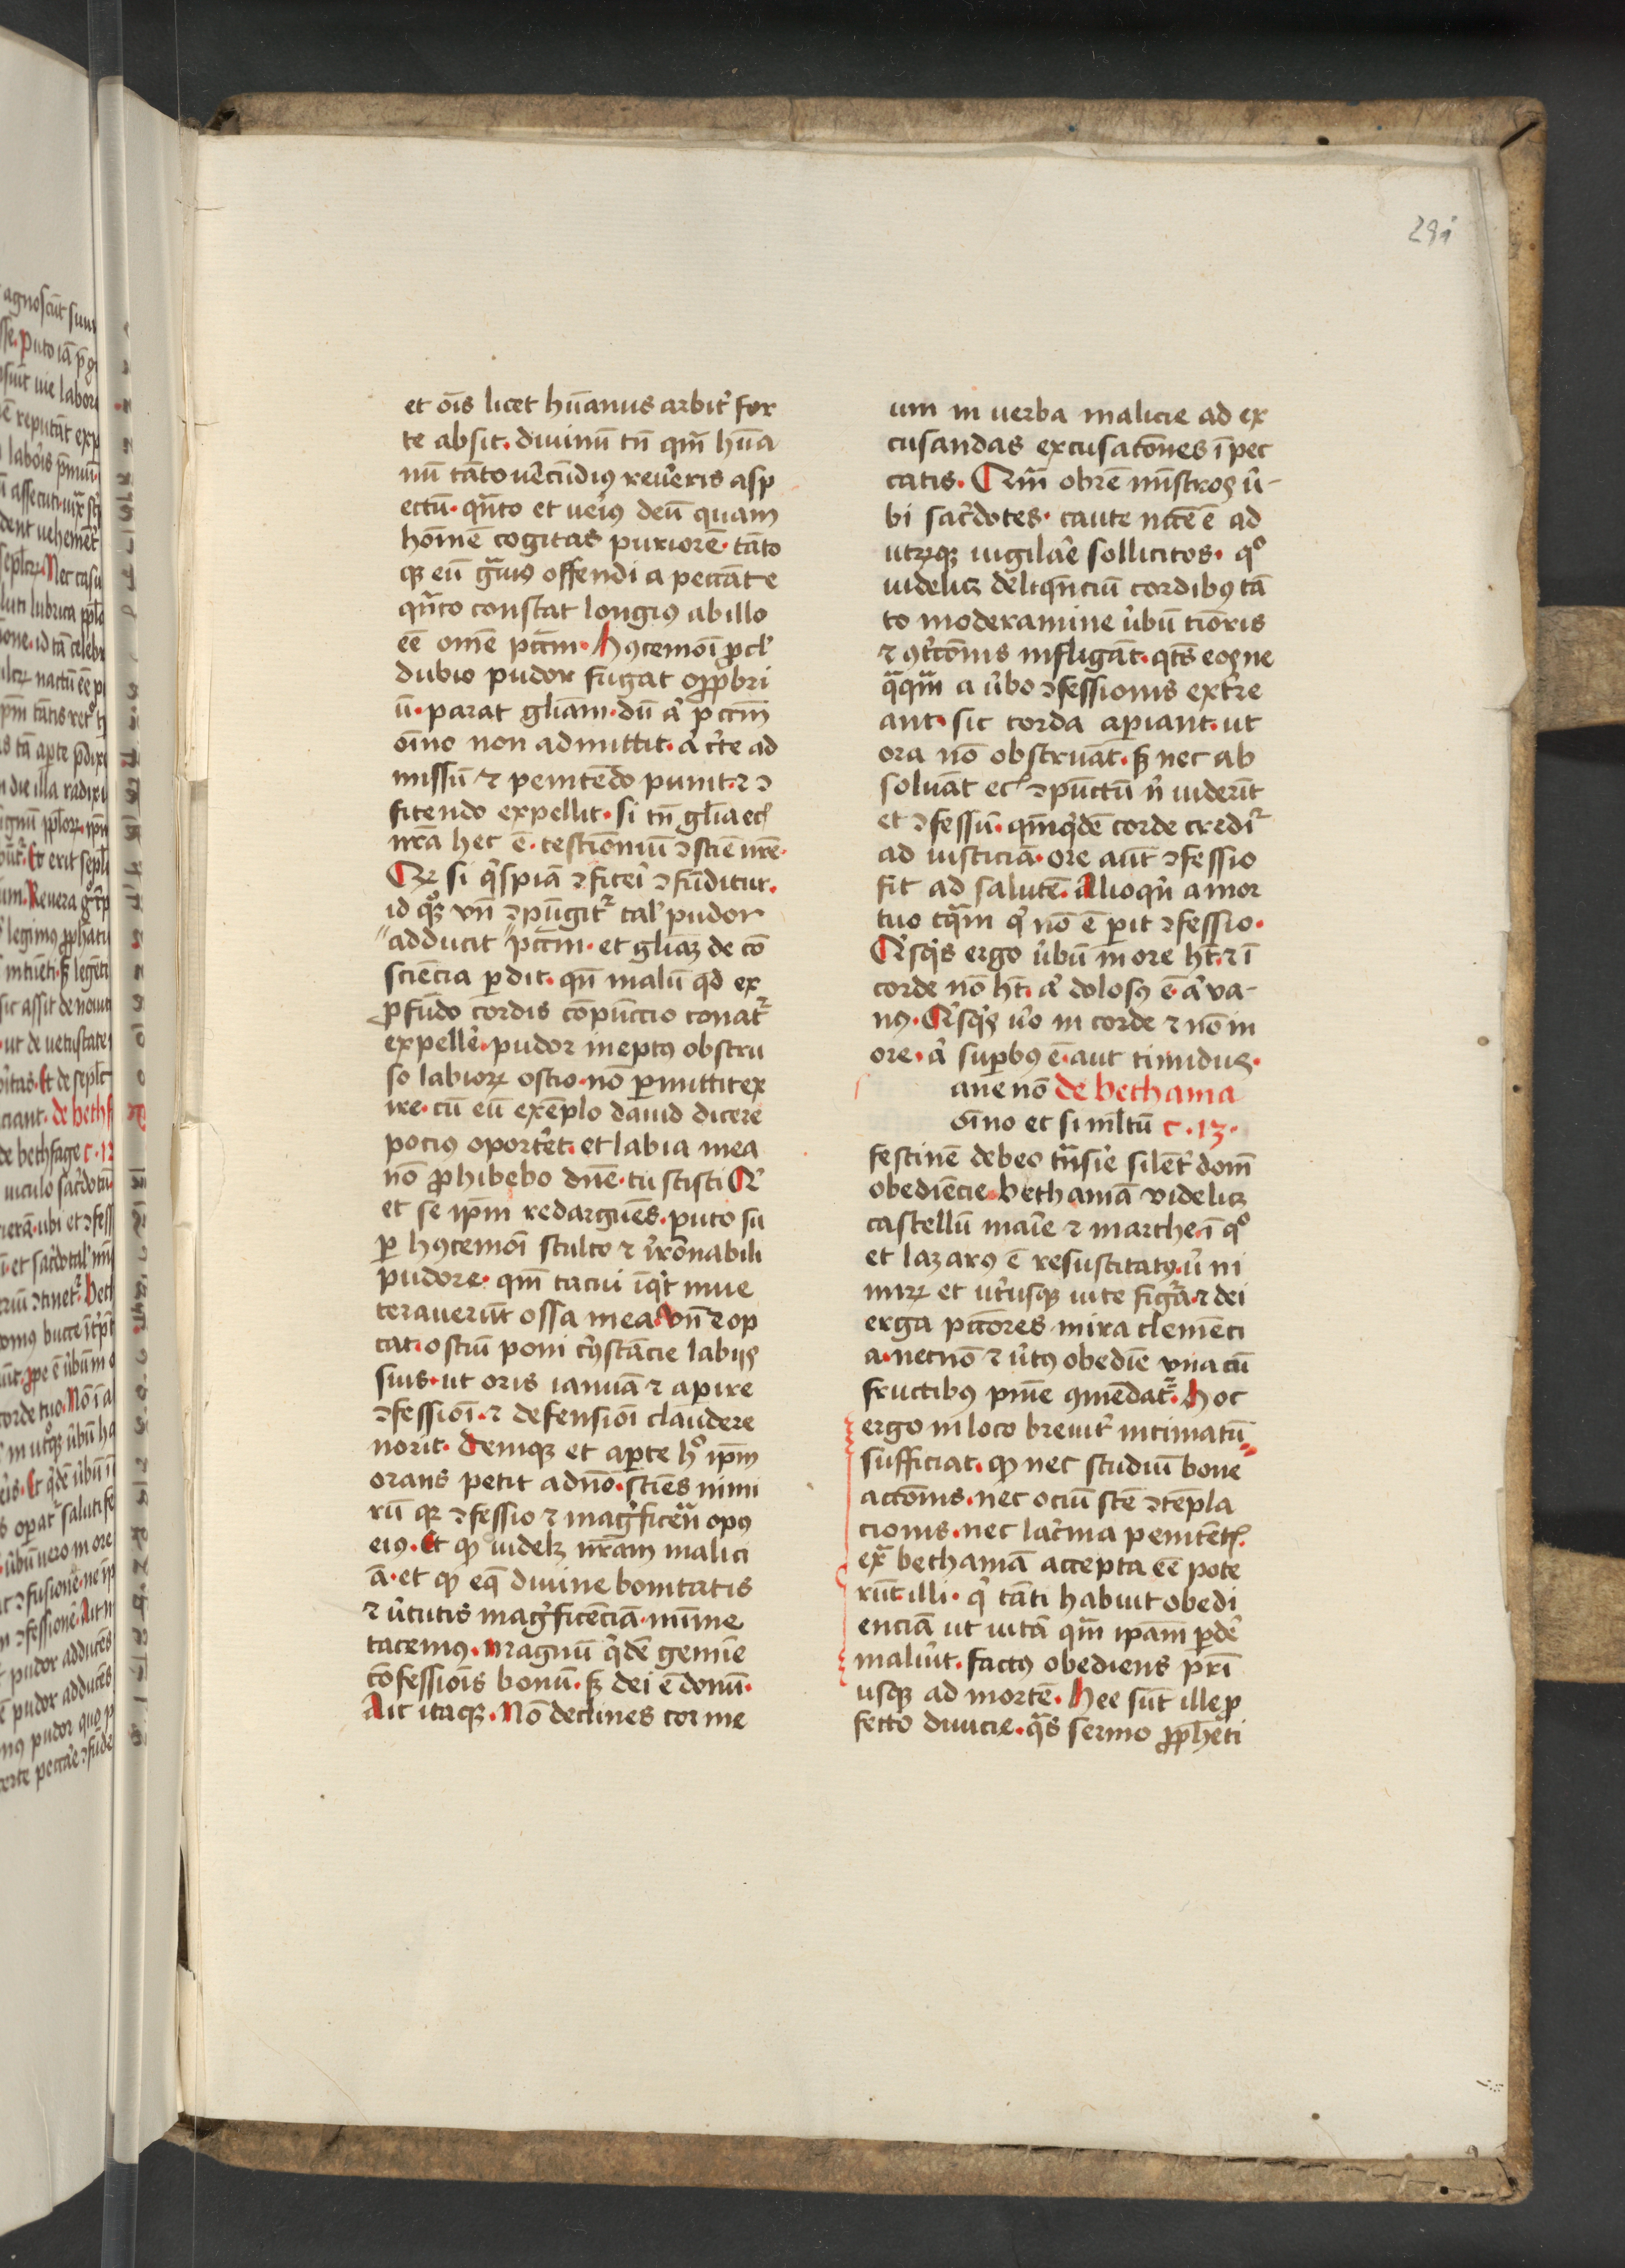 291
et oı̄s licet hūanus arbit̓ for
te absit. diuinū tn̄ qm̄ hūa
nū tāto uēcūdiꝰ reuēris asp
ectū. qn̄to et ueiꝰ deū quam
homē cogitas puriorē. tāto
qꝫ eū gͣuiꝰ offendi a peccāte
qn̄to constat longiꝰ ab illo
eē omē pctm̄. Hꝰcemoı̄ ꝓcl̓
dubio pudor fugat opꝓbri
ū. parat gliam. dū a̓ pctm̄
oı̄no non admittit. a̓ c̓te ad
missū ⁊ penitēdo punit. ⁊ ↄ
fitendo expellit. si tn̄ glīa ec̓
nr̄a hec ē. testiōniū ↄsciē nr̄e.
Qꝛ si q̓spiā ↄfitei̓ ↄfūditur.
id qͦꝫ vn̄ ↄpūgit͛ tal̓ pudor
adducit pctm̄. et gliaꝫ de cō
sciēcia ꝑdit. qn̄ malū qd̓ ex
ꝓfūdo cordis cōpūctio conat͛
expelle̓. pudor ineptꝰ obstru
so labioꝝ ostio. nō ꝑmittit ex
ire. cū eū exēplo dauid dicere
pociꝰ oportēt. et labia mea
nō ꝓhibebo dn̄e. tu scisti Q̓
et se ip̄m redarguēs. puto su
ꝑ hꝰcemoı̄ stulto ⁊ ı̓rōnabili
pudore. qm̄ tacui iqͥt inue
terauerūt ossa mea. Vn̄ ⁊ op
tat. ostiū poni c̓cūstācie labijs
suis. ut oris ianuā ⁊ aꝑire
ↄfessioı̄. ⁊ defensioı̄ claudere
norit. Deniqꝫ et aꝑte hͦ ip̄m
orans petit a dn̄o. sciēs nimi
rū qꝛ ↄfessio ⁊ mag̓ficēn̄ opꝰ
eiꝰ. Et qꝫ uidelꝫ nr̄am malici
ā. et qꝫ eqͣ diuine bonitatis
⁊ u̓tutis mag̓ficēciā. mı̄me
tacemꝰ. Magnū qͥdē gemīe
cōfessiōis bonū. sꝫ dei ē donū.
Ait itaqꝫ. Nō declines cor me
um in uerba malicie ad ex
cusandas excusatōnes ī pec
catis. Qm̄ obrē mı̄stros u̓-
bi sac̓dotes. caute nccē ē ad
utrūqꝫ uigilāe sollicitos. qͦ
uidelicꝫ delīqn̄ciū cordibꝰ tā
to moderamine u̓bū tiōris
⁊ ꝯtͥcōnis infligāt. qtꝰ eos ne
qͣqͣm a u̓bo ↄfessionis ext̓re
ant. sic corda aꝑiant. ut
ora nō obstruāt. sꝫ nec ab
soluāt ec̓ ↄpūctū n̓ uiderīt
et ↄfessū. qm̄qͥdē corde credi͛
ad iusticiā. ore aūt ↄfessio
fit ad salutē. Alioqn̓ a mor
tuo tqͣm qͥ nō ē ꝑit ↄfessio.
Q̓sqͥs ergo u̓bū in ore ht̄. ⁊ ī
corde nō ht̄. a̓ dolosꝰ ē. a̓ va-
nꝰ. Q̓sqͥs u̓o in corde ⁊ nō in
ore. a̓ suꝑbꝰ ē. aut timidus.
ane nō de bethania
oı̄no et si mltū c. 13.
festinē debeo tn̄sie̓ silēt̓ domū
obediēcie. bethaniā videlicꝫ
castellū maı̄e ⁊ marthe. ī qͦ
et lazarꝰ ē resuscitatꝰ. u̓ ni
mirꝫ et ut̓usqꝫ uite figͣrͣ ⁊ dei
erga pctōres mira clemēci
a. necnō ⁊ u̓tꝰ obediē vna cū
fructibꝰ pn̄ie ꝯmēdat͛. Hoc
ergo in loco breuit̓ intimatū
sufficiat. qꝫ nec studiū bone
actōnis. nec ociū stē ↄtēpla
cionis. nec lac̓ma penitēt̓.
exͣ bethaniā accepta eē pote
rūt illi. qͥ tāti habuit obedi
enciā ut uitā qm̄ ip̄am ꝑde̓
maluīt. factꝰ obediens pr̄i
usqꝫ ad mortē. Hee sūt ille ꝓ
fecto diuicie. qͣs sermo ꝓpheti